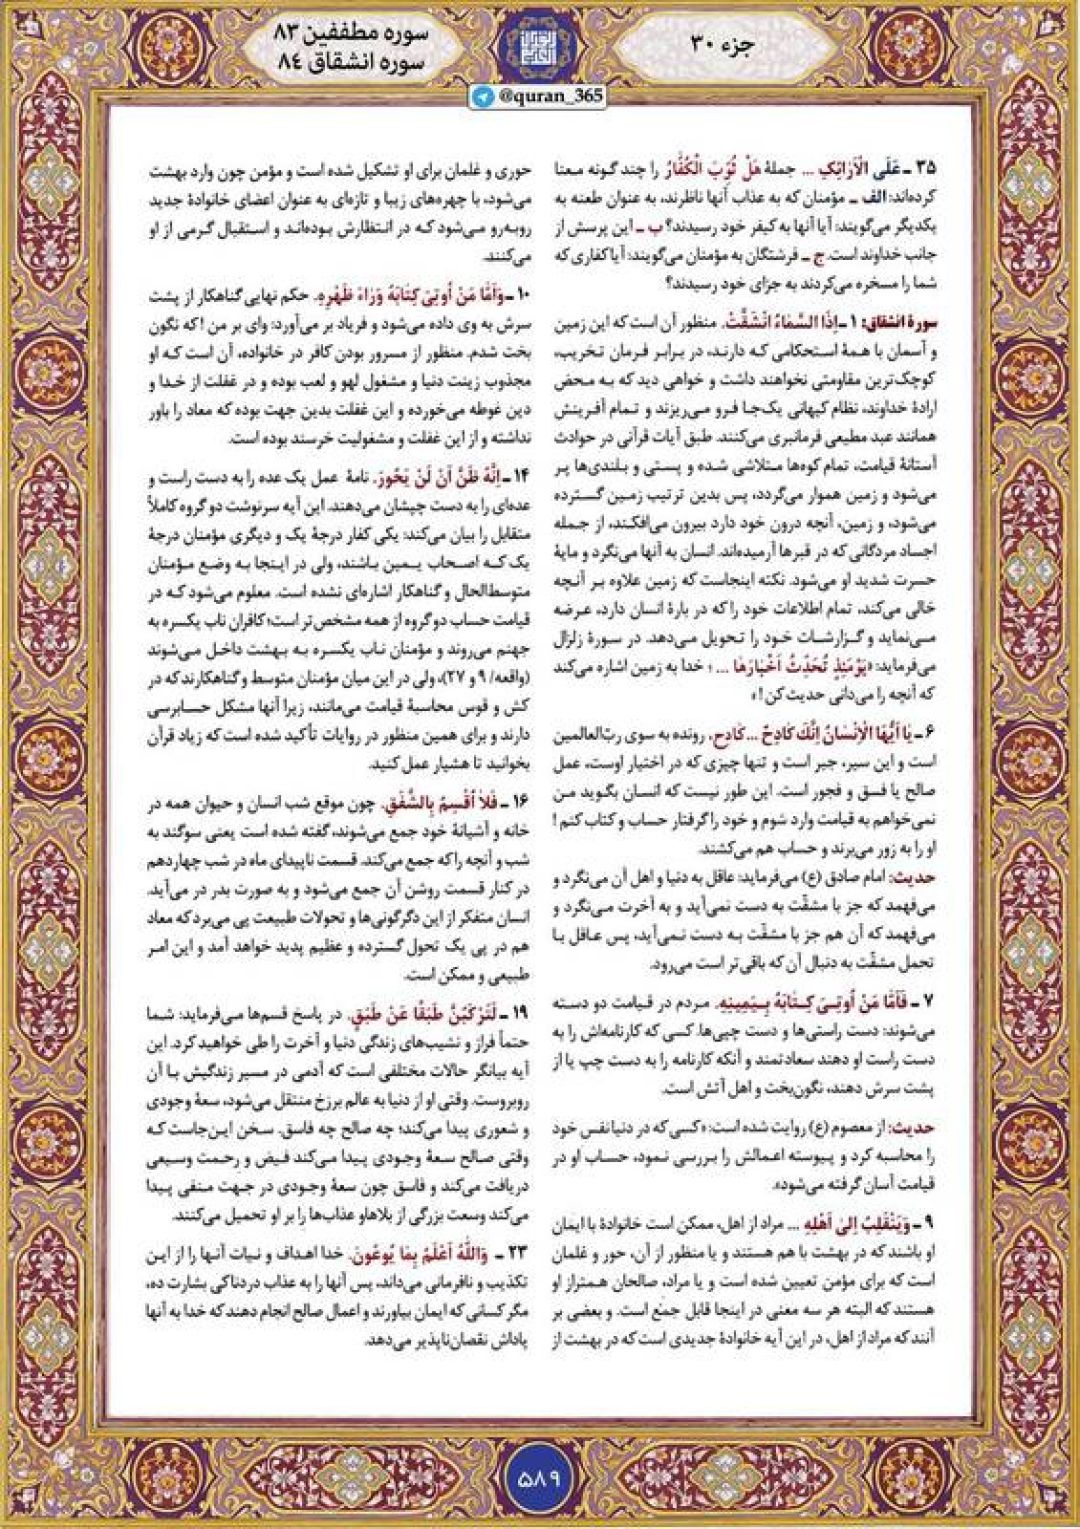 جزء ۳۰
سوره مطففین ۸۳
سوره انشقاق ۸۴
@quran_365
۳۵ ـ عَلَی الْاَرٰائِکِ ... جملهٔ هَلْ ثُوِّبَ الْکُفّٰارُ را چند گونه معنا
کرده‌اند: الف ـ مؤمنان که به عذاب آنها ناظرند، به عنوان طعنه به
یکدیگر می‌گویند: آیا آنها به کیفر خود رسیدند؟ ب ـ این پرسش از
جانب خداوند است. ج ـ فرشتگان به مؤمنان می‌گویند: آیا کفاری که
شما را مسخره می‌کردند به جزای خود رسیدند؟
سورهٔ انشقاق: ۱ ـ اِذَا السَّمٰاءُ انْشَقَّتْ. منظور آن است که این زمین
و آسمان با همهٔ استحکامی که دارند، در برابر فرمان تخریب،
کوچک‌ترین مقاومتی نخواهند داشت و خواهی دید که به محض
ارادهٔ خداوند، نظام کیهانی یک‌جا فرو می‌ریزند و تمام آفرینش
همانند عبد مطیعی فرمانبری می‌کنند. طبق آیات قرآنی در حوادث
آستانهٔ قیامت، تمام کوه‌ها متلاشی شده و پستی و بلندی‌ها پر
می‌شود و زمین هموار می‌گردد، پس بدین ترتیب زمین گسترده
می‌شود، و زمین، آنچه درون خود دارد بیرون می‌افکند، از جمله
اجساد مردگانی که در قبرها آرمیده‌اند. انسان به آنها می‌نگرد و مایهٔ
حسرت شدید او می‌شود. نکته اینجاست که زمین علاوه بر آنچه
خالی می‌کند، تمام اطلاعات خود را که در بارهٔ انسان دارد، عرضه
می‌نماید و گزارشات خود را تحویل می‌دهد. در سورهٔ زلزال
می‌فرماید: «یَوْمَئِذٍ تُحَدِّثُ اَخْبٰارَهٰا ... ؛ خدا به زمین اشاره می‌کند
که آنچه را می‌دانی حدیث کن!»
۶ ـ یٰا اَیُّهَا الْاِنْسٰانُ اِنَّکَ کٰادِحٌ ... کٰادِح، رونده به سوی ربّ‌العالمین
است و این سیر، جبر است و تنها چیزی که در اختیار اوست، عمل
صالح یا فسق و فجور است. این طور نیست که انسان بگوید من
نمی‌خواهم به قیامت وارد شوم و خود را گرفتار حساب و کتاب کنم!
او را به زور می‌برند و حساب هم می‌کشند.
حدیث: امام صادق (ع) می‌فرماید: عاقل به دنیا و اهل آن می‌نگرد و
می‌فهمد که جز با مشقّت به دست نمی‌آید و به آخرت می‌نگرد و
می‌فهمد که آن هم جز با مشقّت به دست نمی‌آید، پس عاقل با
تحمل مشقّت به دنبال آن که باقی‌تر است می‌رود.
۷ ـ فَاَمّٰا مَنْ اُوتِیَ کِتٰابَهُ بِیَمِینِهِ. مردم در قیامت دو دسته
می‌شوند: دست راستی‌ها و دست چپی‌ها. کسی که کارنامه‌اش را به
دست راست او دهند سعادتمند و آنکه کارنامه را به دست چپ یا از
پشت سرش دهند، نگون‌بخت و اهل آتش است.
حدیث: از معصوم (ع) روایت شده است: «کسی که در دنیا نفس خود
را محاسبه کرد و پیوسته اعمالش را بررسی نمود، حساب او در
قیامت آسان گرفته می‌شود».
۹ ـ وَیَنْقَلِبُ اِلیٰ اَهْلِهِ ... مراد از اهل، ممکن است خانوادهٔ با ایمان
او باشند که در بهشت با هم هستند و یا منظور از آن، حور و غلمان
است که برای مؤمن تعیین شده است و یا مراد، صالحان همتراز او
هستند که البته هر سه معنی در اینجا قابل جمع است. و بعضی بر
آنند که مراد از اهل، در این آیه خانوادهٔ جدیدی است که در بهشت از
حوری و غلمان برای او تشکیل شده است و مؤمن چون وارد بهشت
می‌شود، با چهره‌های زیبا و تازه‌ای به عنوان اعضای خانوادهٔ جدید
روبه‌رو می‌شود که در انتظارش بوده‌اند و استقبال گرمی از او
می‌کنند.
۱۰ ـ وَاَمّٰا مَنْ اُوتِیَ کِتٰابَهُ وَرٰاءَ ظَهْرِهِ. حکم نهایی گناهکار از پشت
سرش به وی داده می‌شود و فریاد بر می‌آورد: وای بر من! که نگون
بخت شدم. منظور از مسرور بودن کافر در خانواده، آن است که او
مجذوب زینت دنیا و مشغول لهو و لعب بوده و در غفلت از خدا و
دین غوطه می‌خورده و این غفلت بدین جهت بوده که معاد را باور
نداشته و از این غفلت و مشغولیت خرسند بوده است.
۱۴ ـ اِنَّهُ ظَنَّ اَنْ لَنْ یَحُورَ. نامهٔ عمل یک عده را به دست راست و
عده‌ای را به دست چپشان می‌دهند. این آیه سرنوشت دو گروه کاملاً
متقابل را بیان می‌کند: یکی کفار درجهٔ یک و دیگری مؤمنان درجهٔ
یک که اصحاب یمین باشند، ولی در اینجا به وضع مؤمنان
متوسط‌الحال و گناهکار اشاره‌ای نشده است. معلوم می‌شود که در
قیامت حساب دو گروه از همه مشخص‌تر است؛ کافران ناب یکسره به
جهنم می‌روند و مؤمنان ناب یکسره به بهشت داخل می‌شوند
(واقعه/ ۹ و ۲۷)، ولی در این میان مؤمنان متوسط و گناهکارند که در
کش و قوس محاسبهٔ قیامت می‌مانند، زیرا آنها مشکل حسابرسی
دارند و برای همین منظور در روایات تأکید شده است که زیاد قرآن
بخوانید تا هشیار عمل کنید.
۱۶ ـ فَلاٰ اُقْسِمُ بِالشَّفَقِ. چون موقع شب انسان و حیوان همه در
خانه و آشیانهٔ خود جمع می‌شوند، گفته شده است یعنی سوگند به
شب و آنچه را که جمع می‌کند. قسمت ناپیدای ماه در شب چهاردهم
در کنار قسمت روشن آن جمع می‌شود و به صورت بدر در می‌آید.
انسان متفکر از این دگرگونی‌ها و تحولات طبیعت پی می‌برد که معاد
هم در پی یک تحول گسترده و عظیم پدید خواهد آمد و این امر
طبیعی و ممکن است.
۱۹ ـ لَتَرْکَبُنَّ طَبَقًا عَنْ طَبَقٍ. در پاسخ قسم‌ها می‌فرماید: شما
حتماً فراز و نشیب‌های زندگی دنیا و آخرت را طی خواهید کرد. این
آیه بیانگر حالات مختلفی است که آدمی در مسیر زندگیش با آن
روبروست. وقتی او از دنیا به عالم برزخ منتقل می‌شود، سعهٔ وجودی
و شعوری پیدا می‌کند؛ چه صالح چه فاسق. سخن این‌جاست که
وقتی صالح سعهٔ وجودی پیدا می‌کند فیض و رحمت وسیعی
دریافت می‌کند و فاسق چون سعهٔ وجودی در جهت منفی پیدا
می‌کند وسعت بزرگی از بلاها و عذاب‌ها را بر او تحمیل می‌کنند.
۲۳ ـ وَاللّٰهُ اَعْلَمُ بِمٰا یُوعُونَ. خدا اهداف و نیات آنها را از این
تکذیب و نافرمانی می‌داند، پس آنها را به عذاب دردناکی بشارت ده،
مگر کسانی که ایمان بیاورند و اعمال صالح انجام دهند که خدا به آنها
پاداش نقصان‌ناپذیر می‌دهد.
۵۸۹